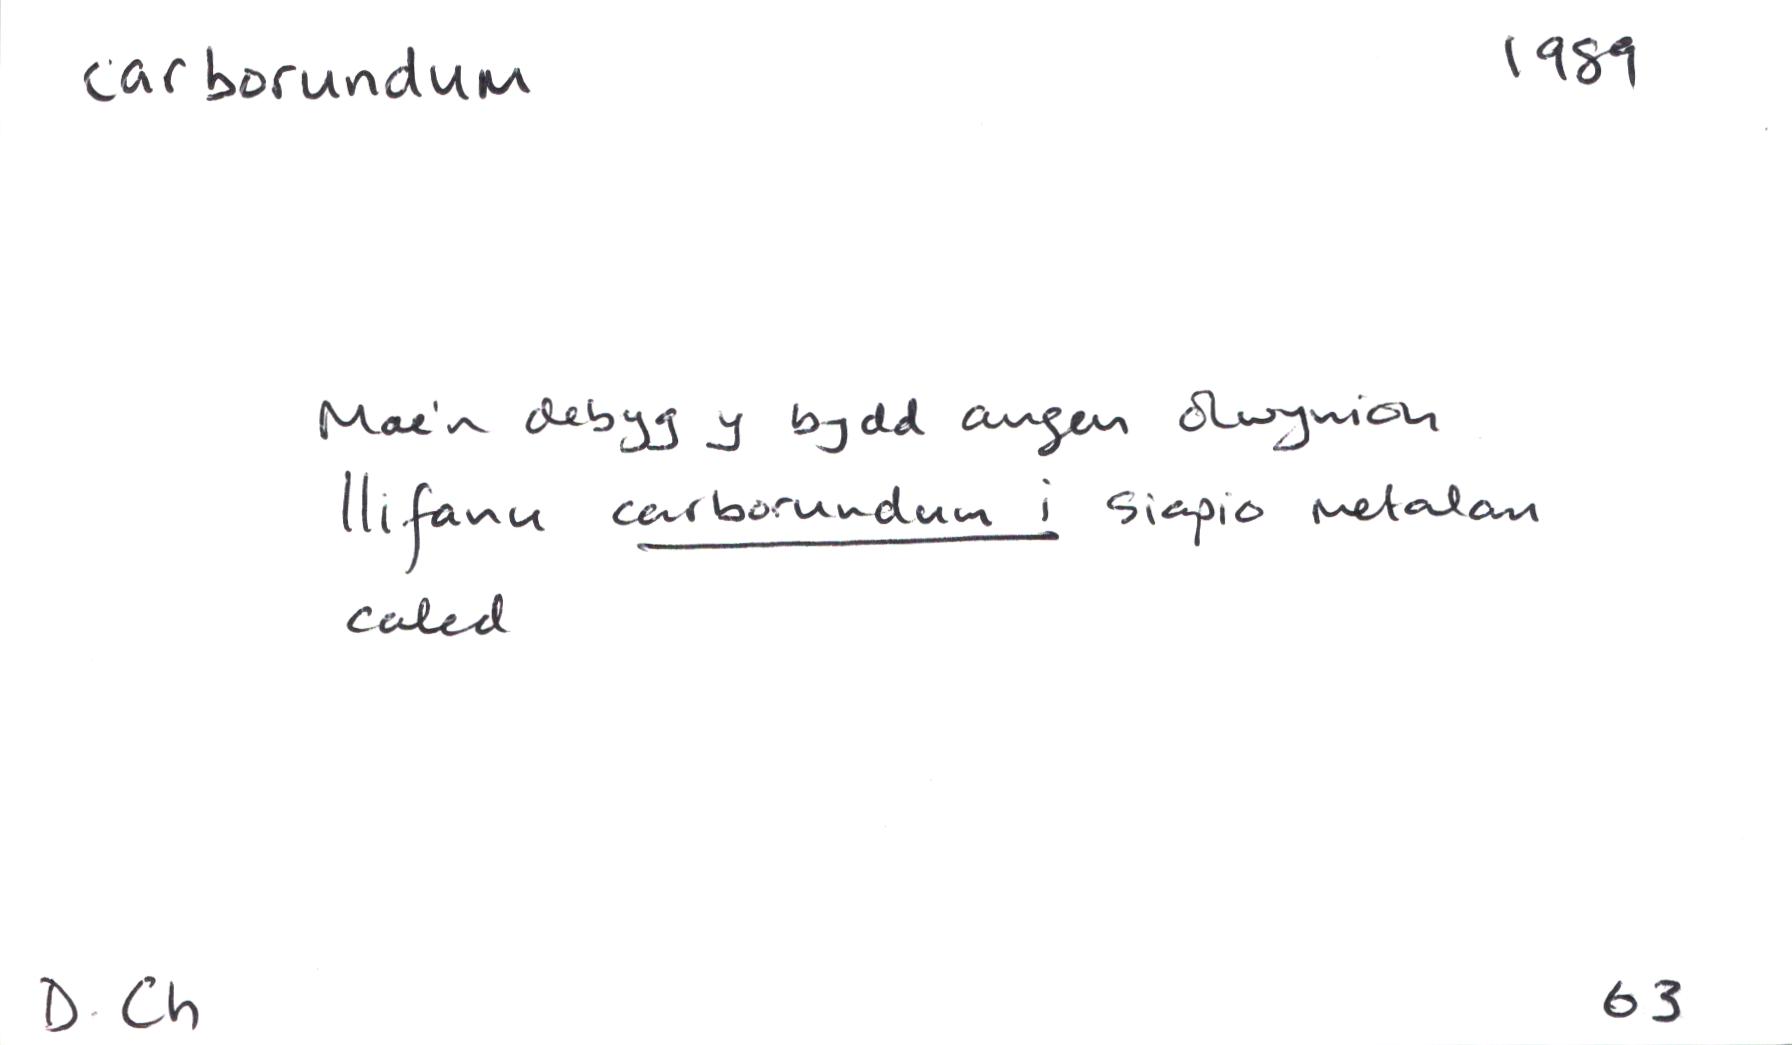 carborundum 1989
Mae'n debyg y bydd angen olwynion
llifanu carborundum i siapio metalau
caled
D. Ch 63